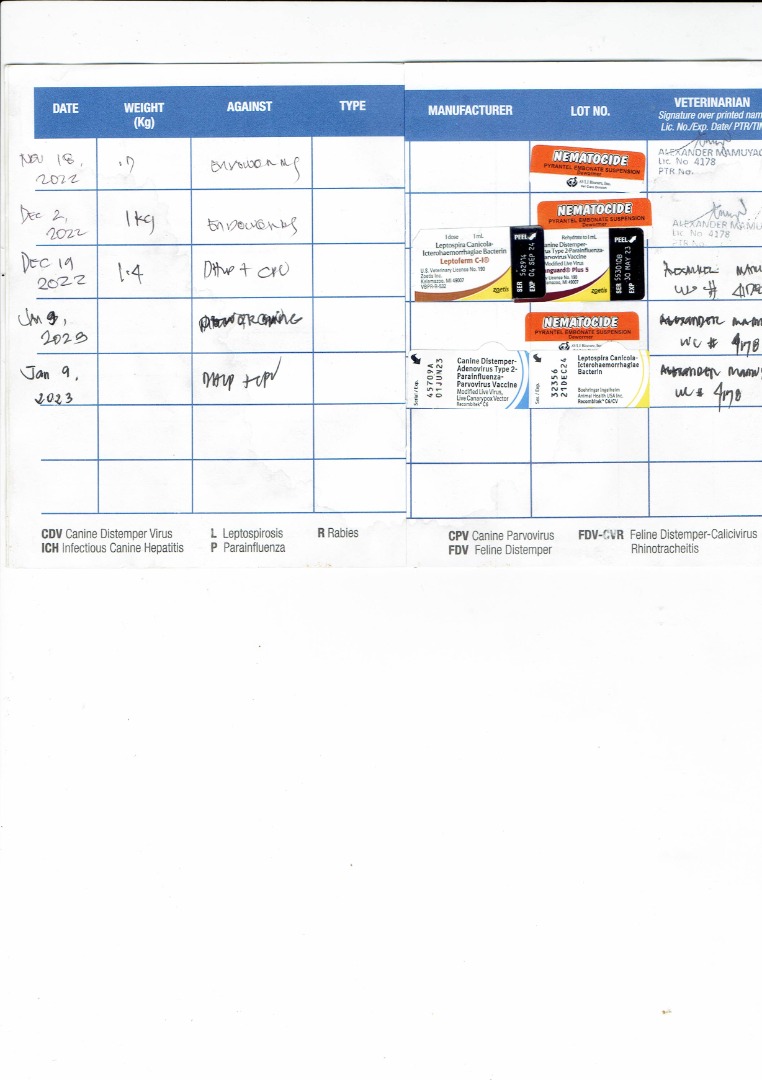 DATE WEIGHT (Kg) AGAINST TYPE MANUFACTURER LOT NO. VETERINARIAN
Signature over printed nam
Lic. No./Exp. Date/ PTR/TIN
Nov 18, 2022 .7
NEMATOCIDE
PYRANTEL EMBONATE SUSPENSION
Dewormer
ALEXANDER MAMUYAC
Lic. No 4178
PTR No.
Dec 2, 2022 1kg
NEMATOCIDE
PYRANTEL EMBONATE SUSPENSION
Dewormer
ALEXANDER MAMU
Lic. No. 4178
PTR No
DEC 19 2022 1.4 DHLP + CPV
1 dose 1 mL
Leptospira Canicola-
Icterohaemorrhagiae Bacterin
Leptoferm C-I®
U.S. Veterinary License No. 190
Zoetis Inc.
Kalamazoo, MI 49007
zoetis
PEEL
SER 562914
EXP 04 SEP 24
Rehydrate to 1 mL
anine Distemper-
us Type 2-Parainfluenza-
arvovirus Vaccine
Modified Live Virus
anguard® Plus 5
License No. 190
amazoo, MI 49007
zoetis
PEEL
EXP 30 MAY 23
Jan 9, 2023
NEMATOCIDE
PYRANTEL EMBONATE SUSPENSION
Dewormer
ALEXANDER MAM
LIC # 4178
Jan 9, 2023 DHLP + CPV
Serial / Exp.
45709A
01JUN23
Canine Distemper-
Adenovirus Type 2-
Parainfluenza-
Parvovirus Vaccine
Modified Live Virus,
Live Canarypox Vector
Recombitek® C6
Ser. / Exp.
32356
21DEC24
Leptospira Canicola-
Icterohaemorrhagiae
Bacterin
Boehringer Ingelheim
Animal Health USA Inc.
Recombitek® C6/CV
ALEXANDER MAMU
LIC # 4178
CDV Canine Distemper Virus L Leptospirosis R Rabies
ICH Infectious Canine Hepatitis P Parainfluenza
CPV Canine Parvovirus FDV-CVR Feline Distemper-Calicivirus
FDV Feline Distemper Rhinotracheitis